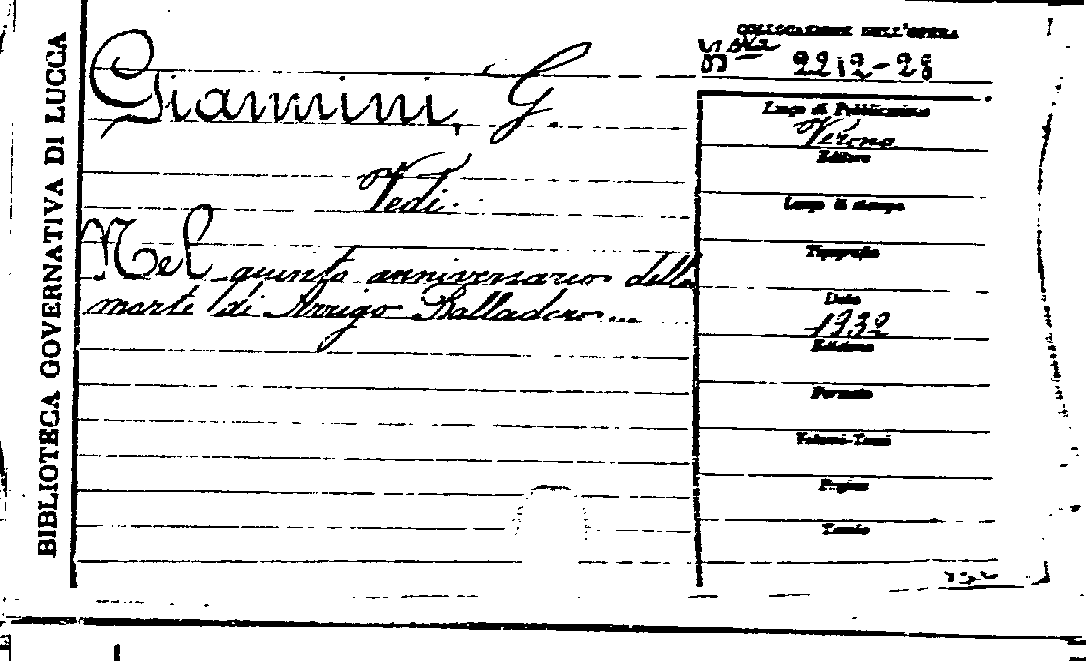 BIBLIOTECA GOVERNATIVA DI LUCCA
Giannini, G.
Vedi.
Nel quinto anniversario della
morte di Arrigo Balladoro...
COLLOCAZIONE DELL'OPERA
2212-28
Luogo di Pubblicazione
Verona
Editore
Luogo di stampa
Tipografia
Data
1932
Edizione
Formato
Volumi-Tomi
Pagine